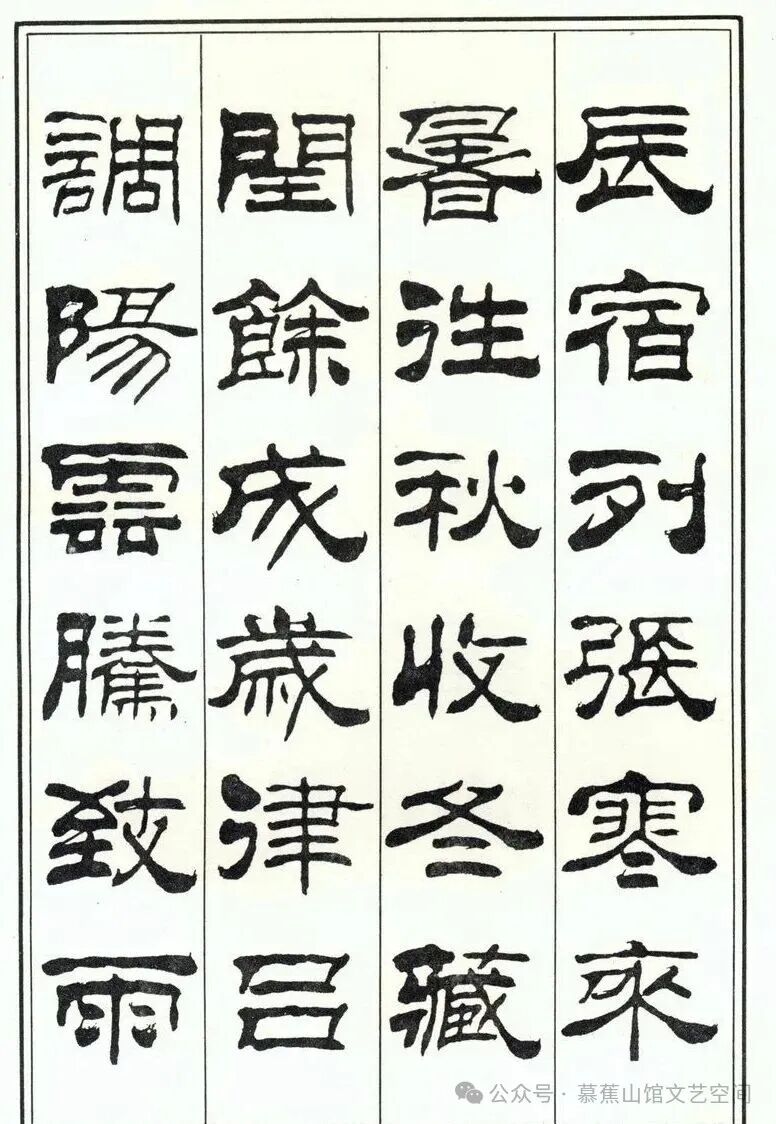 辰宿列張寒來
暑往秋收冬藏
閏餘成歲律吕
調陽雲騰致雨
公众号·慕蕉山馆文艺空间